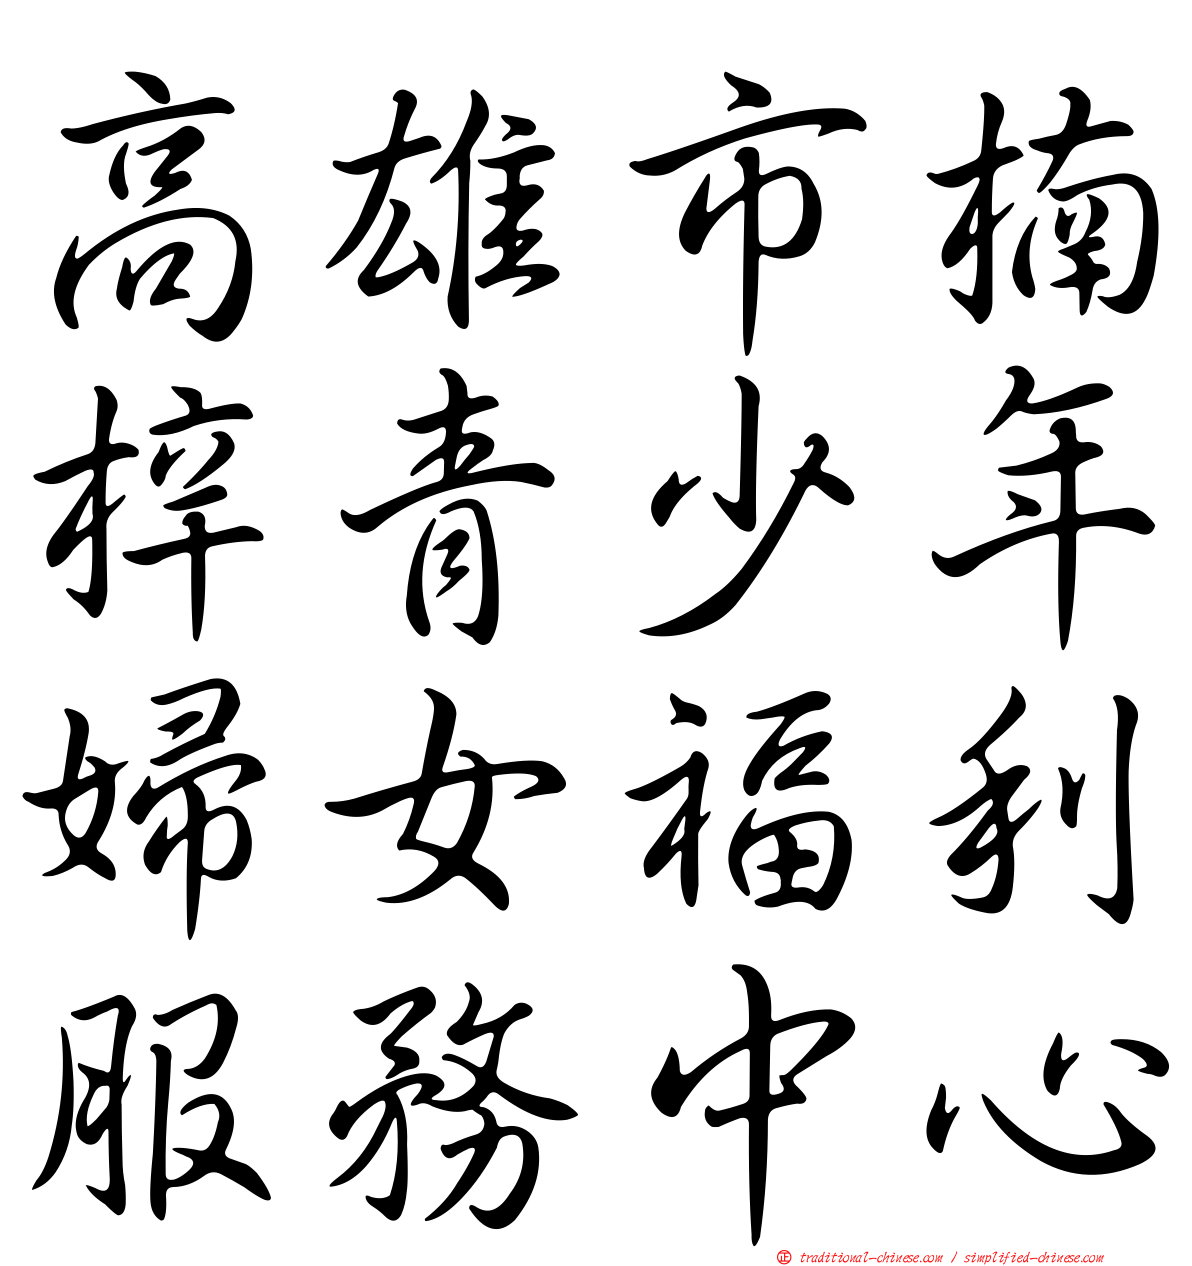 高雄市楠
梓青少年
婦女福利
服務中心
正 traditional-chinese.com / simplified-chinese.com